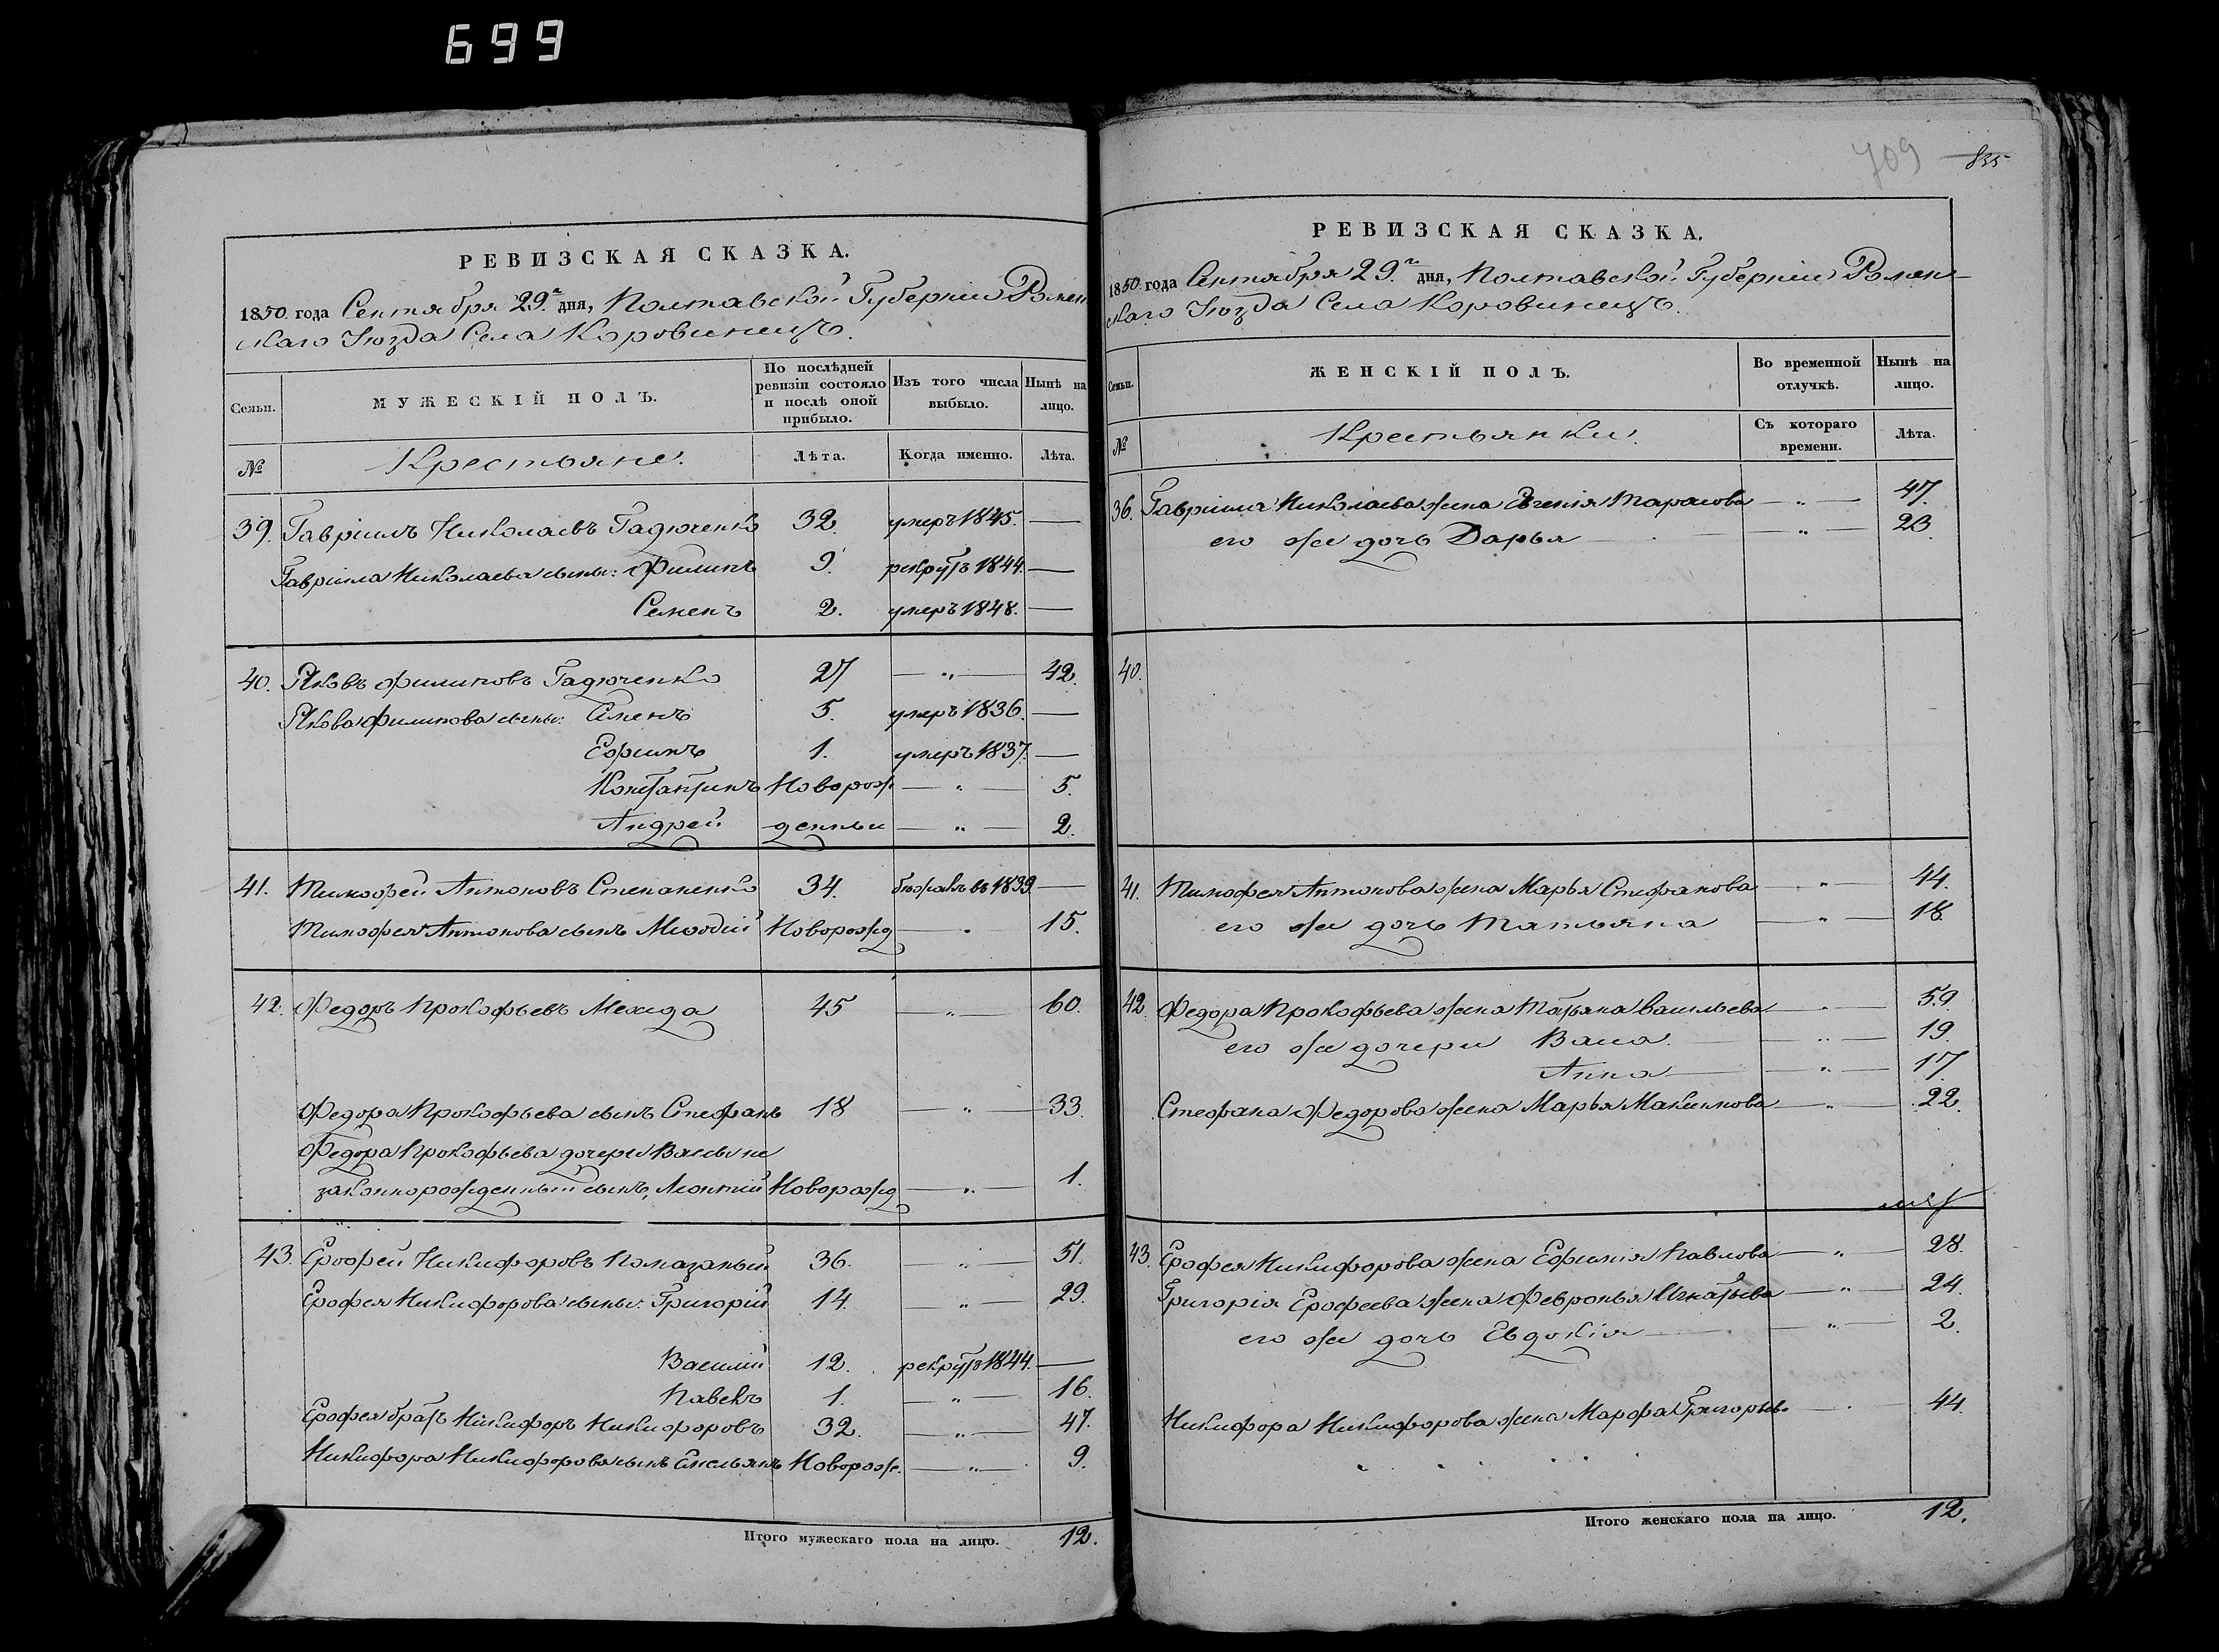 699
709 835
РЕВИЗСКАЯ СКАЗКА.
1850 года Сентября 29.го дня, Полтавской Губерніи Ромен
скаго Уѣзда Села Коровинецъ.
Семьи. МУЖЕСКІЙ ПОЛЪ. По послѣдней ревизіи состояло и послѣ оной прибыло. Изъ того числа выбыло. Нынѣ на лицо.
№ Крестьяне. Лѣта. Когда именно. Лѣта.
39. Гавріилъ Николаевъ Гадюченко 32. умеръ 1845. —
Гавріила Николаева сыны: Филипъ 9. рекрутъ 1844. —
Семенъ 2. умеръ 1848. —
40. Яковъ Филиповъ Гадюченко 27 — " — 42.
Якова Филипова сыны: Семенъ 5. умеръ 1836. —
Ефимъ 1. умеръ 1837. —
Константинъ Новорож — " — 5.
Андрей денныи — " — 2.
41. Тимофей Антоновъ Степаненко 34. бѣжалъ въ 1839 —
Тимофея Антонова сынъ Мефодій Новорожд — " — 15.
42. Федоръ Прокофьевъ Мехида 45 — " — 60.
Федора Прокофьева сынъ Стефанъ 18 — " — 33.
Федора Прокофьева дочери Вассы не
законнорожденный сынъ, Леонтій Новорожд — " — 1.
43. Ерофей Никифоровъ Помазаный 36. — " — 51.
Ерофея Никифорова сыны: Григорій 14. — " — 29.
Василій 12. рекрутъ 1844. —
Павелъ 1. — " — 16.
Ерофея братъ Никифоръ Никифоровъ 32. — " — 47.
Никифора Никифорова сынъ Емельянъ Новорож. — " — 9.
Итого мужескаго пола на лицо. 12.
РЕВИЗСКАЯ СКАЗКА.
1850 года Сентября 29.го дня, Полтавской Губерніи Ромен-
скаго Уѣзда Села Коровинецъ.
Семьи. ЖЕНСКІЙ ПОЛЪ. Во временной отлучкѣ. Нынѣ на лицо.
№ Крестьянки. Съ котораго времени. Лѣта.
36. Гавріила Николаева жена Евгенія Тарасова — " — 47.
его же дочь Дарья — " — 23.
40.
41. Тимофея Антонова жена Марья Стефанова — " — 44.
его же дочь Татьяна — " — 18.
42. Федора Прокофьева жена Татьяна Васильева — " — 59.
его же дочери Васса — " — 19.
Анна — " — 17.
Стефана Федорова жена Марья Макимова — " — 22.
43. Ерофея Никифорова жена Ефимія Павлова — " — 28.
Григорія Ерофеева жена Февронья Игнатьева — " — 24.
его же дочь Евдокія — " — 2.
Никифора Никифорова жена Марфа Григорьев. — " — 44.
Итого женскаго пола на лицо. 12.